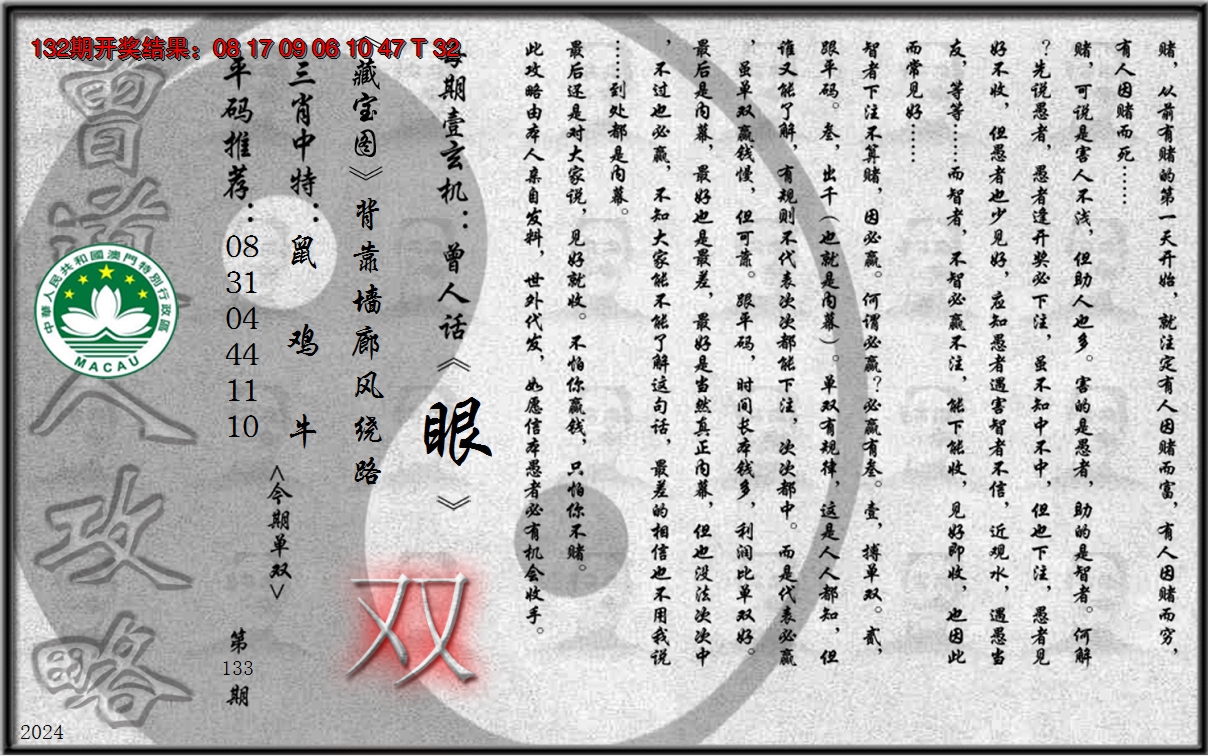 132期开奖结果：08 17 09 06 10 47 T 32
赌，从前有赌的第一天开始，就注定有人因赌而富，有人因赌而穷，
有人因赌而死……
赌，可说是害人不浅，但助人也多。害的是愚者，助的是智者。何解
？先说愚者，愚者逢开奖必下注，虽不知中不中，但也下注，愚者见
好不收，但愚者也少见好，应知愚者遇害智者不信，近观水，遇愚当
友，等等……而智者，不智必赢不注，能下能收，见好即收，也因此
而常见好……
智者下注不算赌，因必赢。何谓必赢？必赢有叁。壹，搏单双。贰，
跟平码。叁，出千（也就是内幕）。单双有规律，这是人人都知，但
谁又能了解，有规则不代表次次都能下注，次次都中。而是代表必赢
，虽单双赢钱慢，但可靠。跟平码，时间长本钱多，利润比单双好。
最后是内幕，最好也是最差，最好是当然真正内幕，但也没法次次中
，不过也必赢，不知大家能不能了解这句话，最差的相信也不用我说
……到处都是内幕。
最后还是对大家说，见好就收。不怕你赢钱，只怕你不赌。
此攻略由本人亲自发料，世外代发，如愿信本愚者必有机会收手。
每期壹玄机：曾人话《眼》
《藏宝图》背靠墙廊风绕路
双
三肖中特：鼠 鸡 牛
<今期单双>
平码推荐：08 31 04 44 11 10
第133期
曾道人攻略
中華人民共和國澳門特別行政區
MACAU
2024